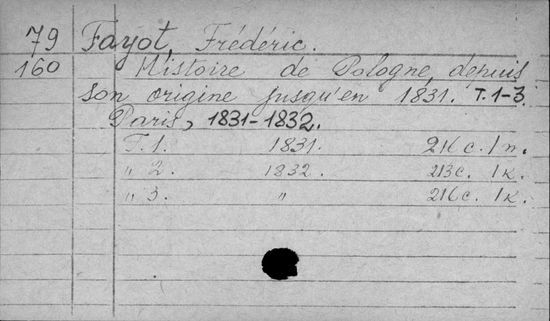 79 Fayot, Frédéric.
160 Histoire de Pologne, depuis
son origine jusqu'en 1831. T. 1-3.
Paris, 1831-1832.
T. 1. 1831. 216 c. 1 п.
" 2. 1832. 213 c. 1 к.
" 3. " 216 c. 1 к.